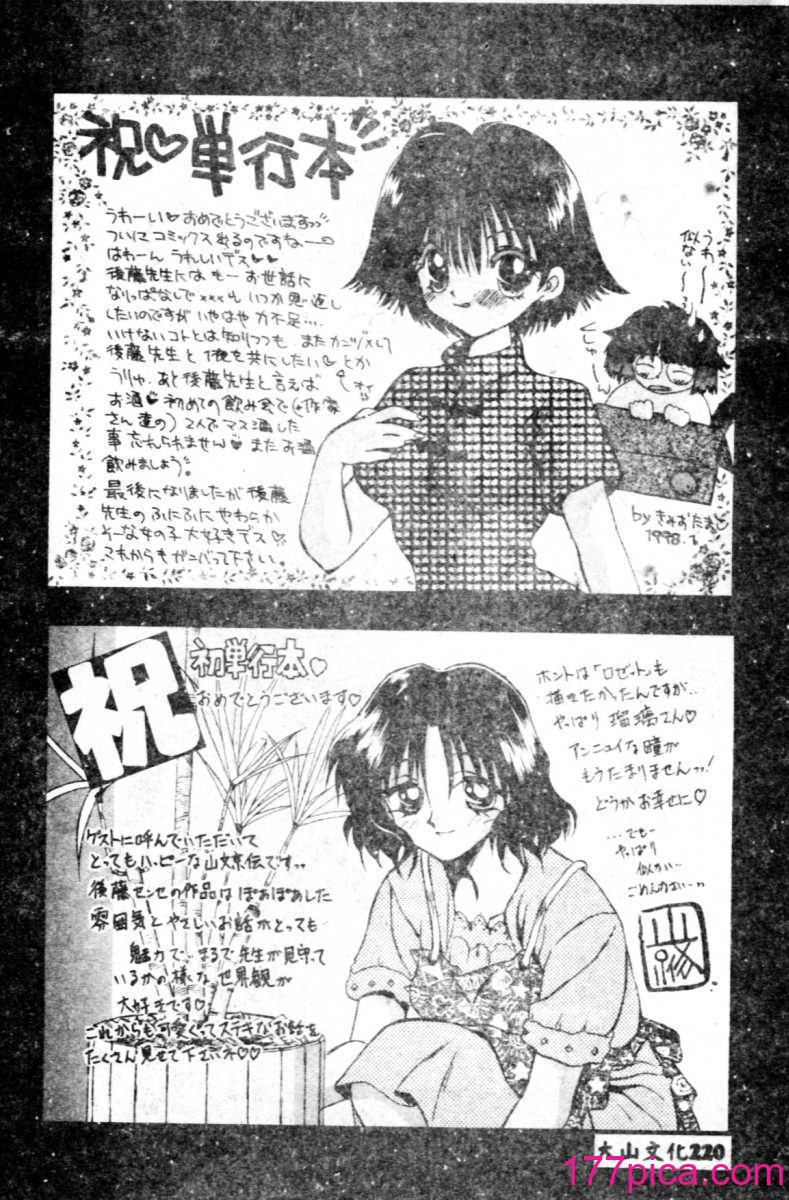 祝♡単行本
うわーい♡おめでとうございますっ
ついにコミックス出るのですねー♡
はわーん うれしいデス♡♡
後藤先生には もー お世話に
なりっぱなしで×××も いつか恩返し
したいのですが いやはや 力不足…
いけないコトとは知りつつも また
後藤先生と 1夜を共にしたい♡とか
うりゃ。あと後藤先生と言えば
お酒♡ 初めての飲み会で(作家
さん達の) 2人でマス酒した
事忘れられません♡ またお酒
飲みましょう。
最後になりましたが 後藤
先生の ふにふに やわらか
そーな女の子 大好きデス♡
これからもガンバって下さい。
うわー
似ないー
by きみおたまこ
1998.
祝
初単行本♡
おめでとうございます♡
ゲストに呼んでいただいて
とってもハッピーな山文京伝ですっ
後藤センセの作品は ぽあぽあした
雰囲気と やさしいお話がとっても
魅力で… まるで先生が見守って
いるかの様な 世界観が
大好きです♡
これからも可愛くってステキなお話を
たくさん見せて下さいネ♡♡
ホントは「ロゼット」も
描きたかったんですが…
やっぱり 瑠璃さん♡
アンニュイな瞳が
もうたまりませんっ!
どうかお幸せに♡
…でもー
やっぱり
似ない…
ごめんなさいーっ
大山文化220
177pica.com